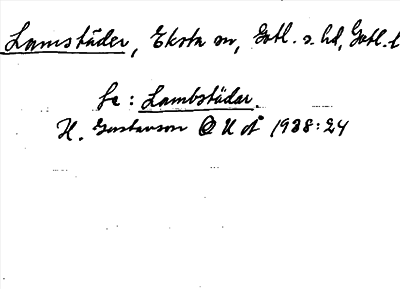 Lamstäder, Eksta sn, Gotl. s. hd, Gotl. l
Se: Lambstädar.
H. Gustavson OUÅ 1938:24